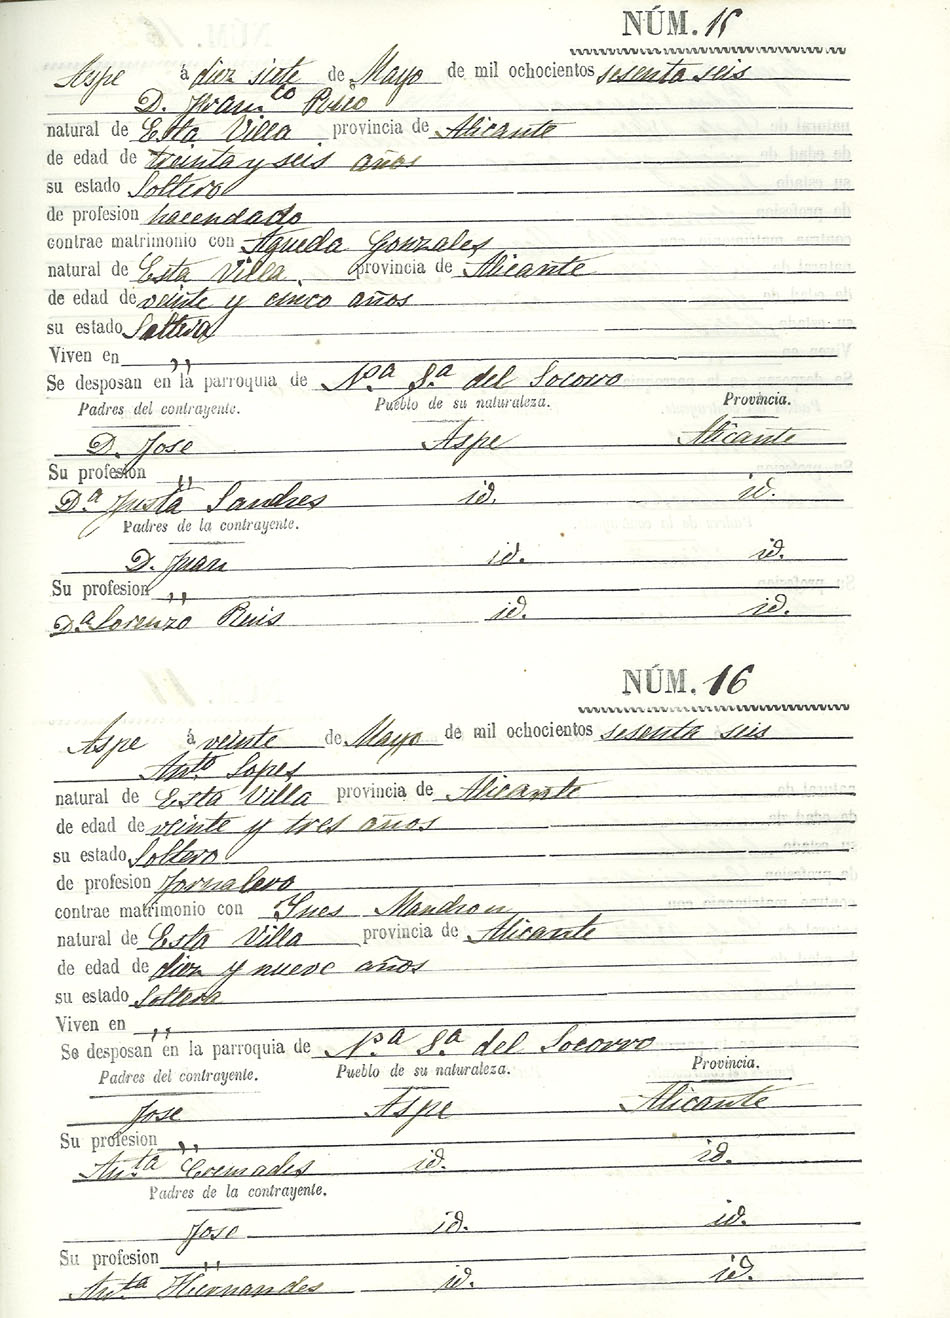 NÚM. 15
Aspe á diez siete de Mayo de mil ochocientos sesenta seis
D. Franco
natural de Esta Villa provincia de Alicante
de edad de treinta y seis años
su estado Soltero
de profesion hacendado
contrae matrimonio con Agueda Gonzales
natural de Esta Villa provincia de Alicante
de edad de veinte y cinco años
su estado Soltera
Viven en ,,
Se desposan en la parroquia de Nª Sª del Socorro
Padres del contrayente. Pueblo de su naturaleza. Provincia.
D. Jose Aspe Alicante
Su profesion ,,
Dª Justa id. id.
Padres de la contrayente.
D. Juan id. id.
Su profesion ,,
Dª Lorenzo Ruis id. id.
NÚM. 16
Aspe á veinte de Mayo de mil ochocientos sesenta seis
Anto Lopes
natural de Esta Villa provincia de Alicante
de edad de veinte y tres años
su estado Soltero
de profesion Jornalero
contrae matrimonio con Ynes
natural de Esta Villa provincia de Alicante
de edad de diez y nueve años
su estado Soltera
Viven en ,,
Se desposan en la parroquia de Nª Sª del Socorro
Padres del contrayente. Pueblo de su naturaleza. Provincia.
Jose Aspe Alicante
Su profesion ,,
Anta Cremades id. id.
Padres de la contrayente.
Jose id. id.
Su profesion ,,
Anta Hernandes id. id.